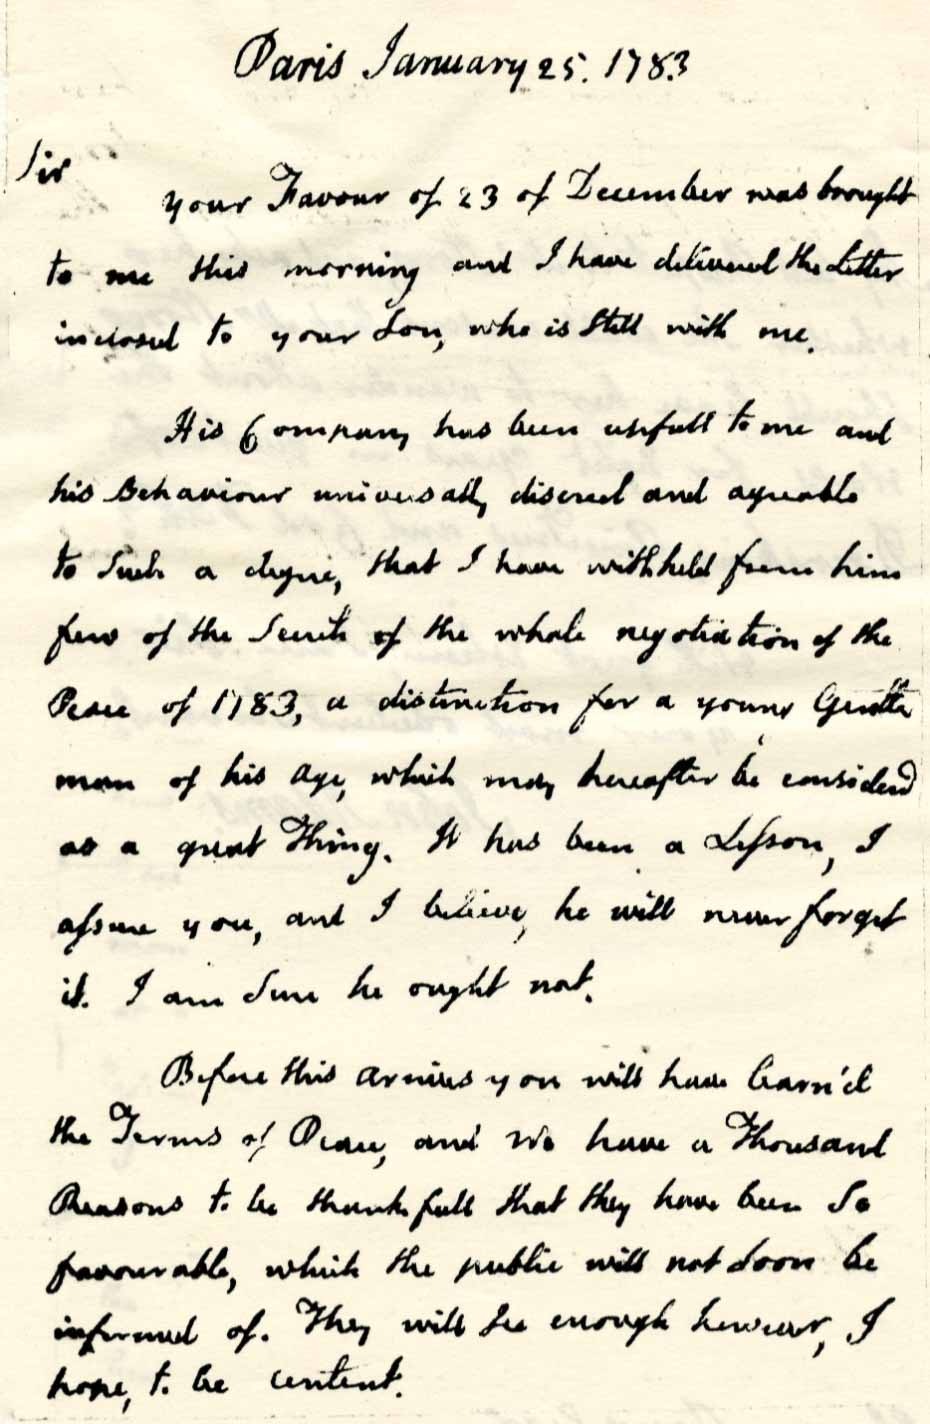 Paris January 25. 1783
Sir
your Favour of 23 of December was brought
to me this morning and I have delivered the Letter
inclosed to your Son, who is Still with me.
His Company has been usefull to me and
his Behaviour universally discreet and agreable
to Such a degree, that I have withheld from him
few of the Secrets of the whole negotiation of the
Peace of 1783, a distinction for a young Gentle
man of his age, which may hereafter be considered
as a great Thing. It has been a Lesson, I
assure you, and I believe, he will never forget
it. I am Sure he ought not.
Before this arrives you will have learn'd
the Terms of Peace, and We have a Thousand
Reasons to be thankfull that they have been So
favourable, which the public will not Soon be
informed of. They will See enough however, I
hope, to be content.